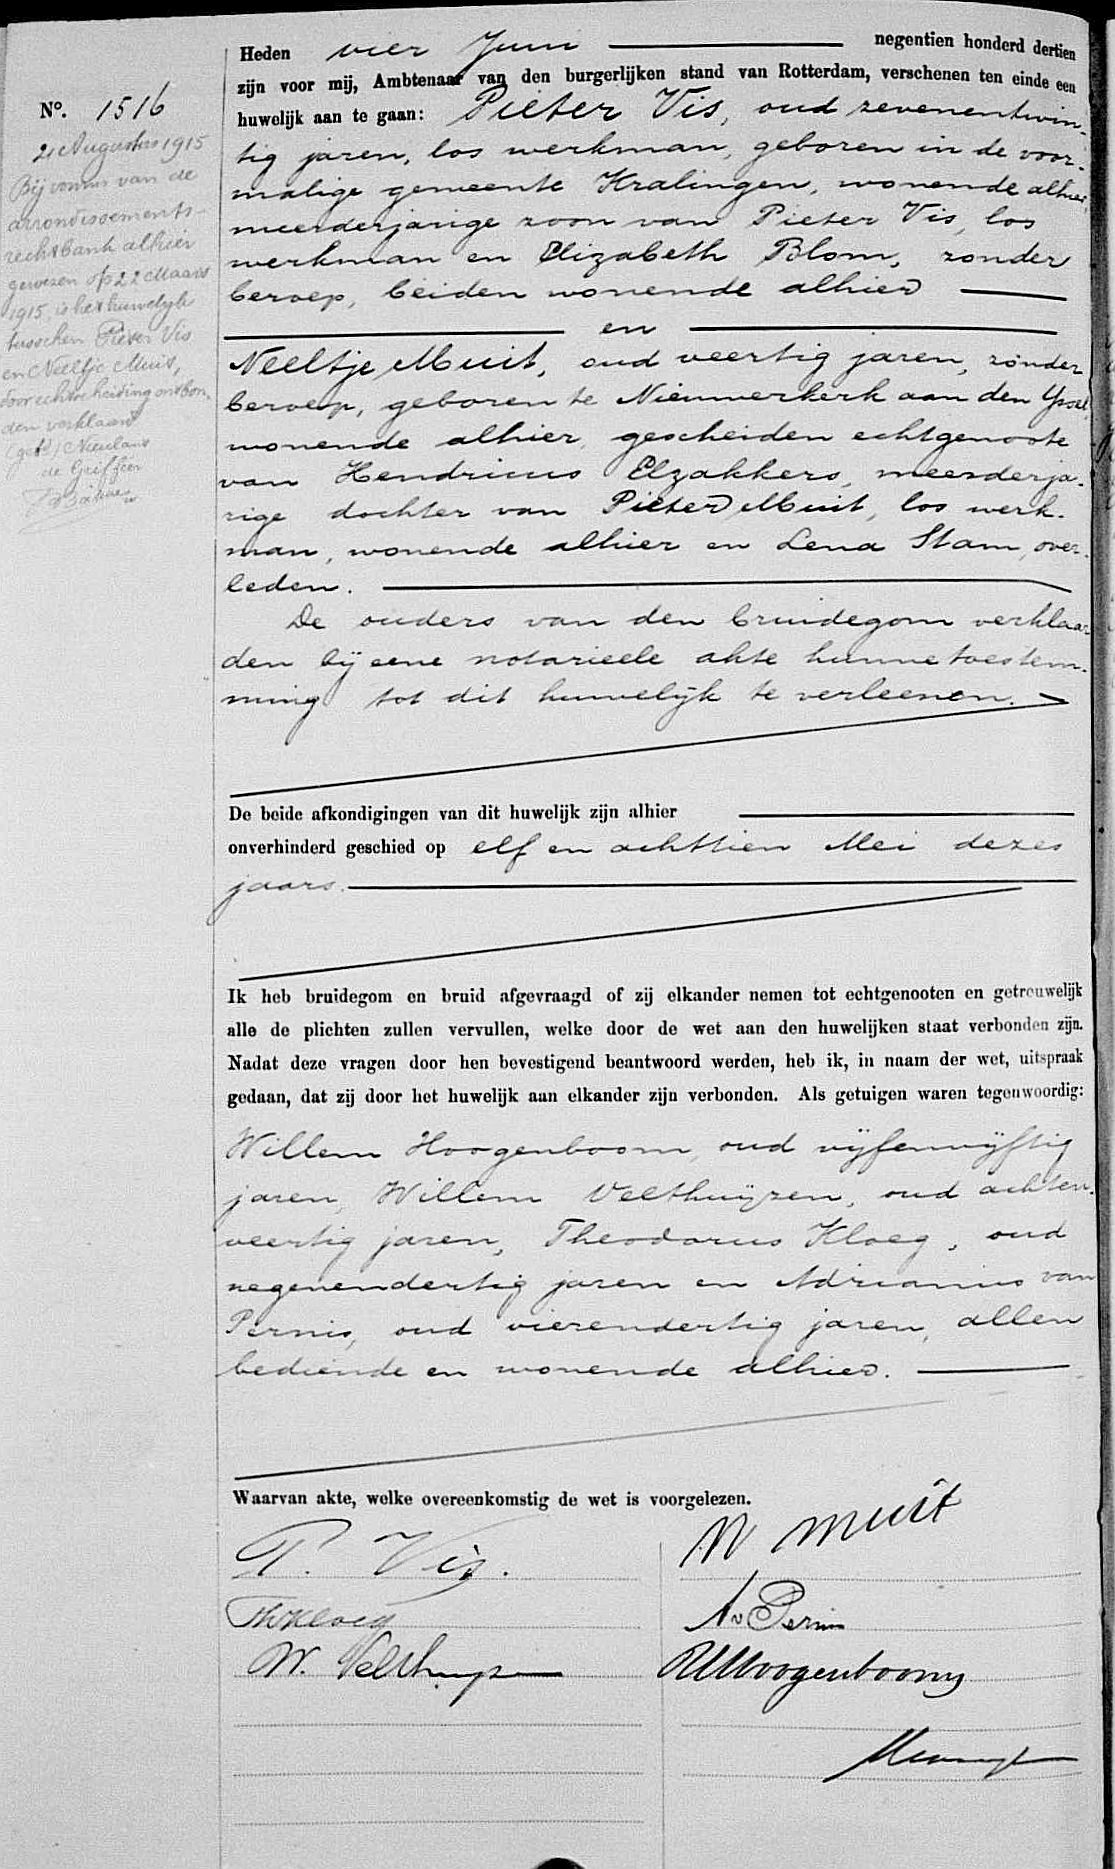 No. 1516
21 Augustus 1915
Bij vonnis van de
arrondissements-
rechtbank alhier
gewezen op 22 Maart
1915, is het huwelijk
tusschen Pieter Vis
en Neeltje Muit,
door echtscheiding ontbon-
den verklaard
(get)
de Griffier
Heden vier Juni negentien honderd dertien
zijn voor mij, Ambtenaar van den burgerlijken stand van Rotterdam, verschenen ten einde een
huwelijk aan te gaan: Pieter Vis, oud zevenentwin-
tig jaren, los werkman, geboren in de voor-
malige gemeente Kralingen, wonende alhier,
meerderjarige zoon van Pieter Vis, los
werkman en Elizabeth Blom, zonder
beroep, beiden wonende alhier
en
Neeltje Muit, oud veertig jaren, zonder
beroep, geboren te Nieuwerkerk aan den Yssel,
wonende alhier, gescheiden echtgenoote
van Hendricus Elzakkers, meerderja-
rige dochter van Pieter Muit, los werk-
man, wonende alhier en Lena Stam, over-
leden.
De ouders van den bruidegom verklaar
den bij eene notarieele akte hunne toestem-
ming tot dit huwelijk te verleenen.
De beide afkondigingen van dit huwelijk zijn alhier
onverhinderd geschied op elf en achttien Mei dezes
jaars.
Ik heb bruidegom en bruid afgevraagd of zij elkander nemen tot echtgenooten en getrouwelijk
alle de plichten zullen vervullen, welke door de wet aan den huwelijken staat verbonden zijn.
Nadat deze vragen door hen bevestigend beantwoord werden, heb ik, in naam der wet, uitspraak
gedaan, dat zij door het huwelijk aan elkander zijn verbonden. Als getuigen waren tegenwoordig:
Willem Hoogenboom, oud vijfenvijftig
jaren, Willem Velthuijzen, oud achten-
veertig jaren, Theodorus Kloeg, oud
negenendertig jaren en Adrianus van
Pernis, oud vierendertig jaren, allen
bediende en wonende alhier.
Waarvan akte, welke overeenkomstig de wet is voorgelezen.
P. Vis.
N Muit
Th Kloeg
A v Pernis
W. Velthuyzen
W Hoogenboom